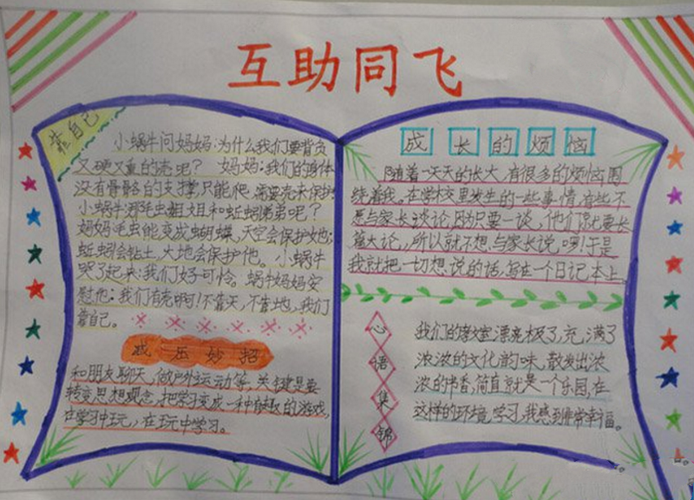 互助同飞
靠自己
小蜗牛问妈妈:为什么我们要背负
又硬又重的壳呢? 妈妈:我们的身体
没有骨骼的支撑,只能爬,需要壳来保护
小蜗牛那毛虫姐姐和蚯蚓弟弟呢?
妈妈毛虫能变成蝴蝶,天空会保护她;
蚯蚓会钻土,大地会保护他。小蜗牛
哭了起来:我们好可怜。蜗牛妈妈安
慰他:我们有壳啊!不靠天,不靠地,我们
靠自己。
减压妙招
和朋友聊天,做户外运动等,关键是要
转变思想观念,把学习变成一种有趣的游戏,
在学习中玩,在玩中学习。
成长的烦恼
随着一天天的长大,有很多的烦恼围
绕着我。在学校里发生的一些事情,有些不
想与家长谈论,因为只要一谈,他们就要长
篇大论,所以就不想与家长说。嗯!于是
我就把一切想说的话,写在一个日记本上。
心语集锦
我们的教室漂亮极了,充满了
浓浓的文化韵味,散发出浓
浓的书香,简直就是一个乐园,在
这样的环境学习,我感到非常幸福。